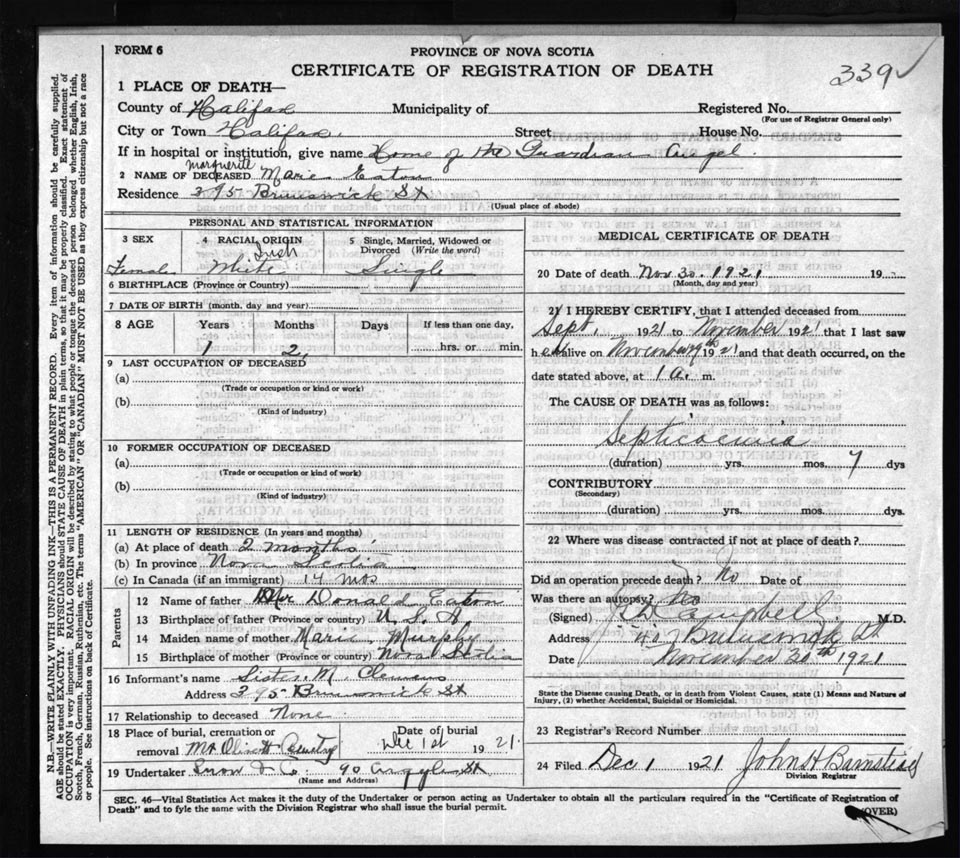 FORM 6
PROVINCE OF NOVA SCOTIA
CERTIFICATE OF REGISTRATION OF DEATH
339 ✓
1 PLACE OF DEATH—
County of Halifax Municipality of Registered No.
(For use of Registrar General only)
City or Town Halifax. Street House No.
If in hospital or institution, give name Home of the Guardian Angel.
Marguerite
2 NAME OF DECEASED Marie Eaton
Residence 395 Brunswick St
(Usual place of abode)
PERSONAL AND STATISTICAL INFORMATION
3 SEX 4 RACIAL ORIGIN 5 Single, Married, Widowed or Divorced (Write the word)
Irish
Female White Single
6 BIRTHPLACE (Province or Country)
7 DATE OF BIRTH (month, day and year)
8 AGE Years Months Days If less than one day,
1 2 hrs. or min.
9 LAST OCCUPATION OF DECEASED
(a)
(Trade or occupation or kind or work)
(b)
(Kind of industry)
10 FORMER OCCUPATION OF DECEASED
(a)
(Trade or occupation or kind of work)
(b)
(Kind of industry)
11 LENGTH OF RESIDENCE (In years and months)
(a) At place of death 2 months
(b) In province Nova Scotia
(c) In Canada (if an immigrant) 14 mos
Parents
12 Name of father Donald Eaton
13 Birthplace of father (Province or country) U.S.A
14 Maiden name of mother Marie Murphy
15 Birthplace of mother (Province or country) Nova Scotia
16 Informant's name Sister M. Clemens
Address 395 Brunswick St
17 Relationship to deceased None
18 Place of burial, cremation or Date of burial
removal Mt Olivet Cemetery Dec 1st 1921.
19 Undertaker Snow & Co. 90 Argyle St
(Name and Address)
MEDICAL CERTIFICATE OF DEATH
20 Date of death Nov 30. 1921 19
(Month, day and year)
21 I HEREBY CERTIFY, that I attended deceased from
Sept. 1921 to November 1921 that I last saw
h er alive on 1921 and that death occurred, on the
date stated above, at 1 a. m.
The CAUSE OF DEATH was as follows:
Septicaemia
(duration) yrs. mos. 7 dys
CONTRIBUTORY
(Secondary)
(duration) yrs. mos. dys.
22 Where was disease contracted if not at place of death?
Did an operation precede death? No Date of
Was there an autopsy? No
(Signed) Campbell M.D.
Address St
Date November 30th 1921
State the Disease causing Death, or in death from Violent Causes, state (1) Means and Nature of
Injury, (2) whether Accidental, Suicidal or Homicidal.
23 Registrar's Record Number
24 Filed Dec 1 1921 John H Barnstead
Division Registrar
SEC. 46—Vital Statistics Act makes it the duty of the Undertaker or person acting as Undertaker to obtain all the particulars required in the "Certificate of Registration of
Death" and to fyle the same with the Division Registrar who shall issue the burial permit.
(OVER)
N.B.—WRITE PLAINLY WITH UNFADING INK—THIS IS A PERMANENT RECORD. Every item of information should be carefully supplied.
AGE should be stated EXACTLY. PHYSICIANS should STATE CAUSE OF DEATH in plain terms, so that it may be properly classified. Exact statement of
OCCUPATION is very important. RACIAL ORIGIN will be described by stating to what people or tongue the deceased person belonged, whether English, Irish,
Scotch, French, German, Russian, Ruthenian, etc. The terms "AMERICAN" OR "CANADIAN" MUST NOT BE USED as they express citizenship but not a race
or people. See instructions on back of Certificate.